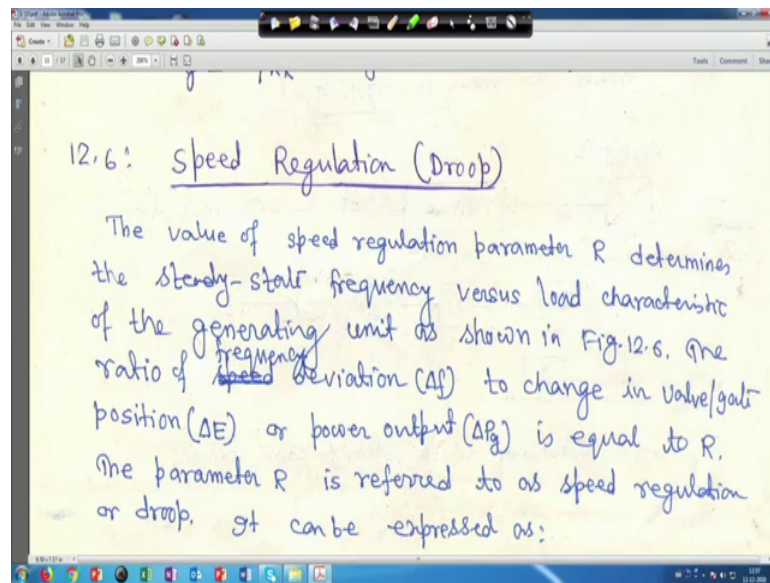 File Edit View Window Help
Create
11 / 37
200%
Tools Comment
12.6: Speed Regulation (Droop)
The value of speed regulation parameter R determines
the steady-state frequency versus load characteristic
of the generating unit as shown in Fig. 12.6. The
ratio of frequency deviation (Δf) to change in valve/gate
position (ΔE) or power output (ΔPg) is equal to R.
The parameter R is referred to as speed regulation
or droop. It can be expressed as: